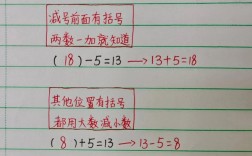 减号前面有括号
两数一加就知道
(18)-5=13→13+5=18
其他位置有括号
都用大数减小数
(8)+5=13→13-5=8